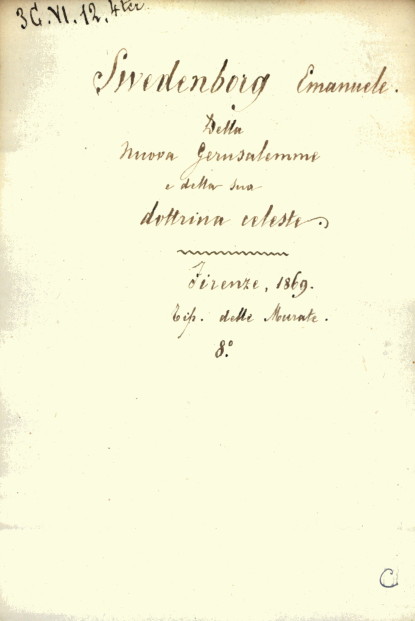 3C.VI.12.4ter
Swedenborg Emanuele.
Della
Nuova Gerusalemme
e della sua
dottrina celeste.
Firenze, 1869.
Tip. delle Murate.
8.°
C